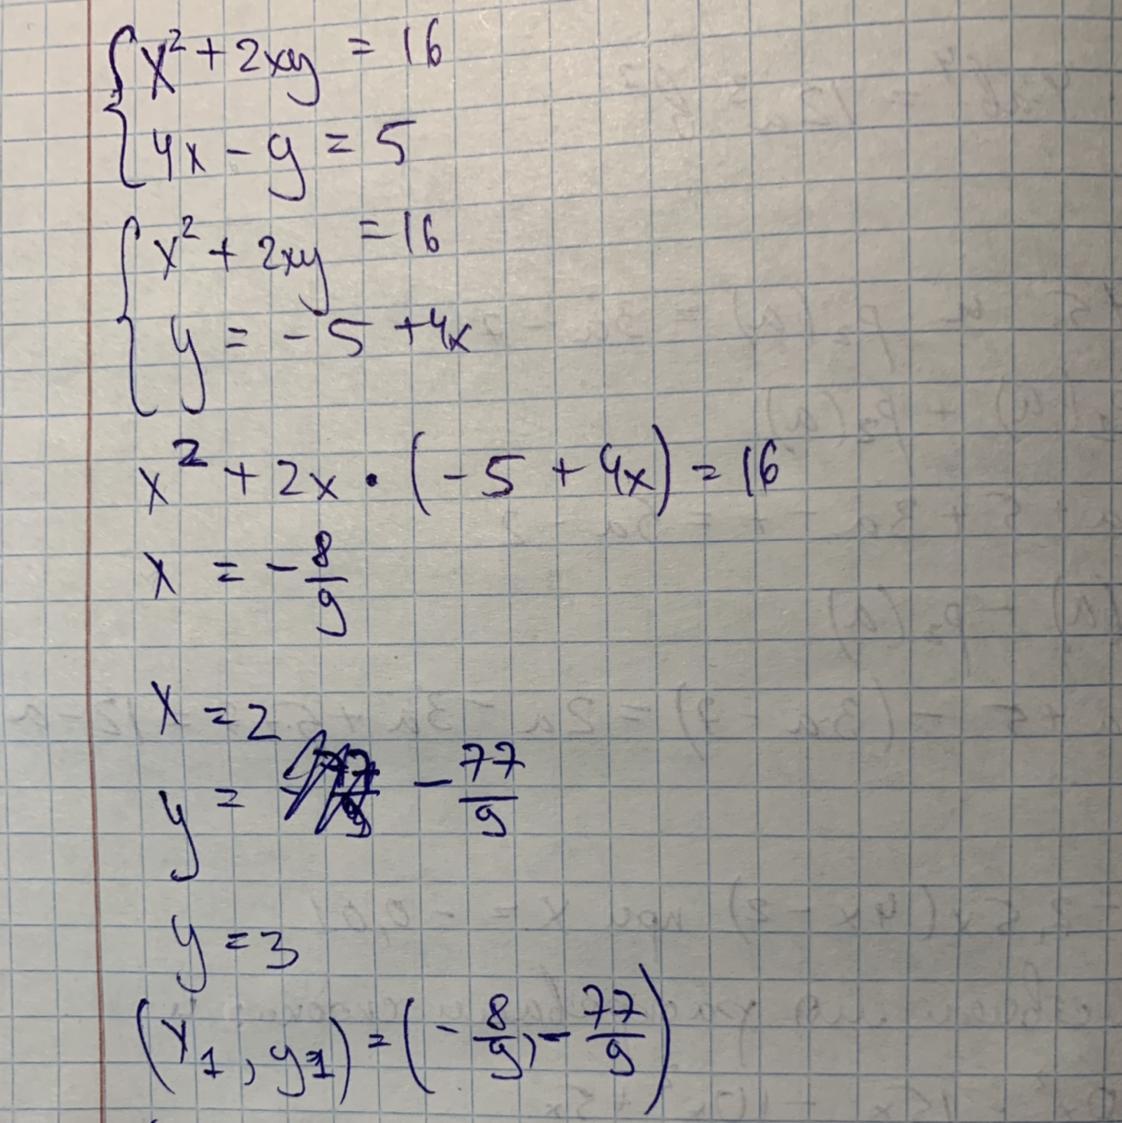 {x² + 2xy = 16
{4x - y = 5
{x² + 2xy = 16
{y = -5 + 4x
x² + 2x · (-5 + 4x) = 16
x = -8/9
x = 2
y = -77/9
y = 3
(x₁, y₁) = (-8/9, -77/9)